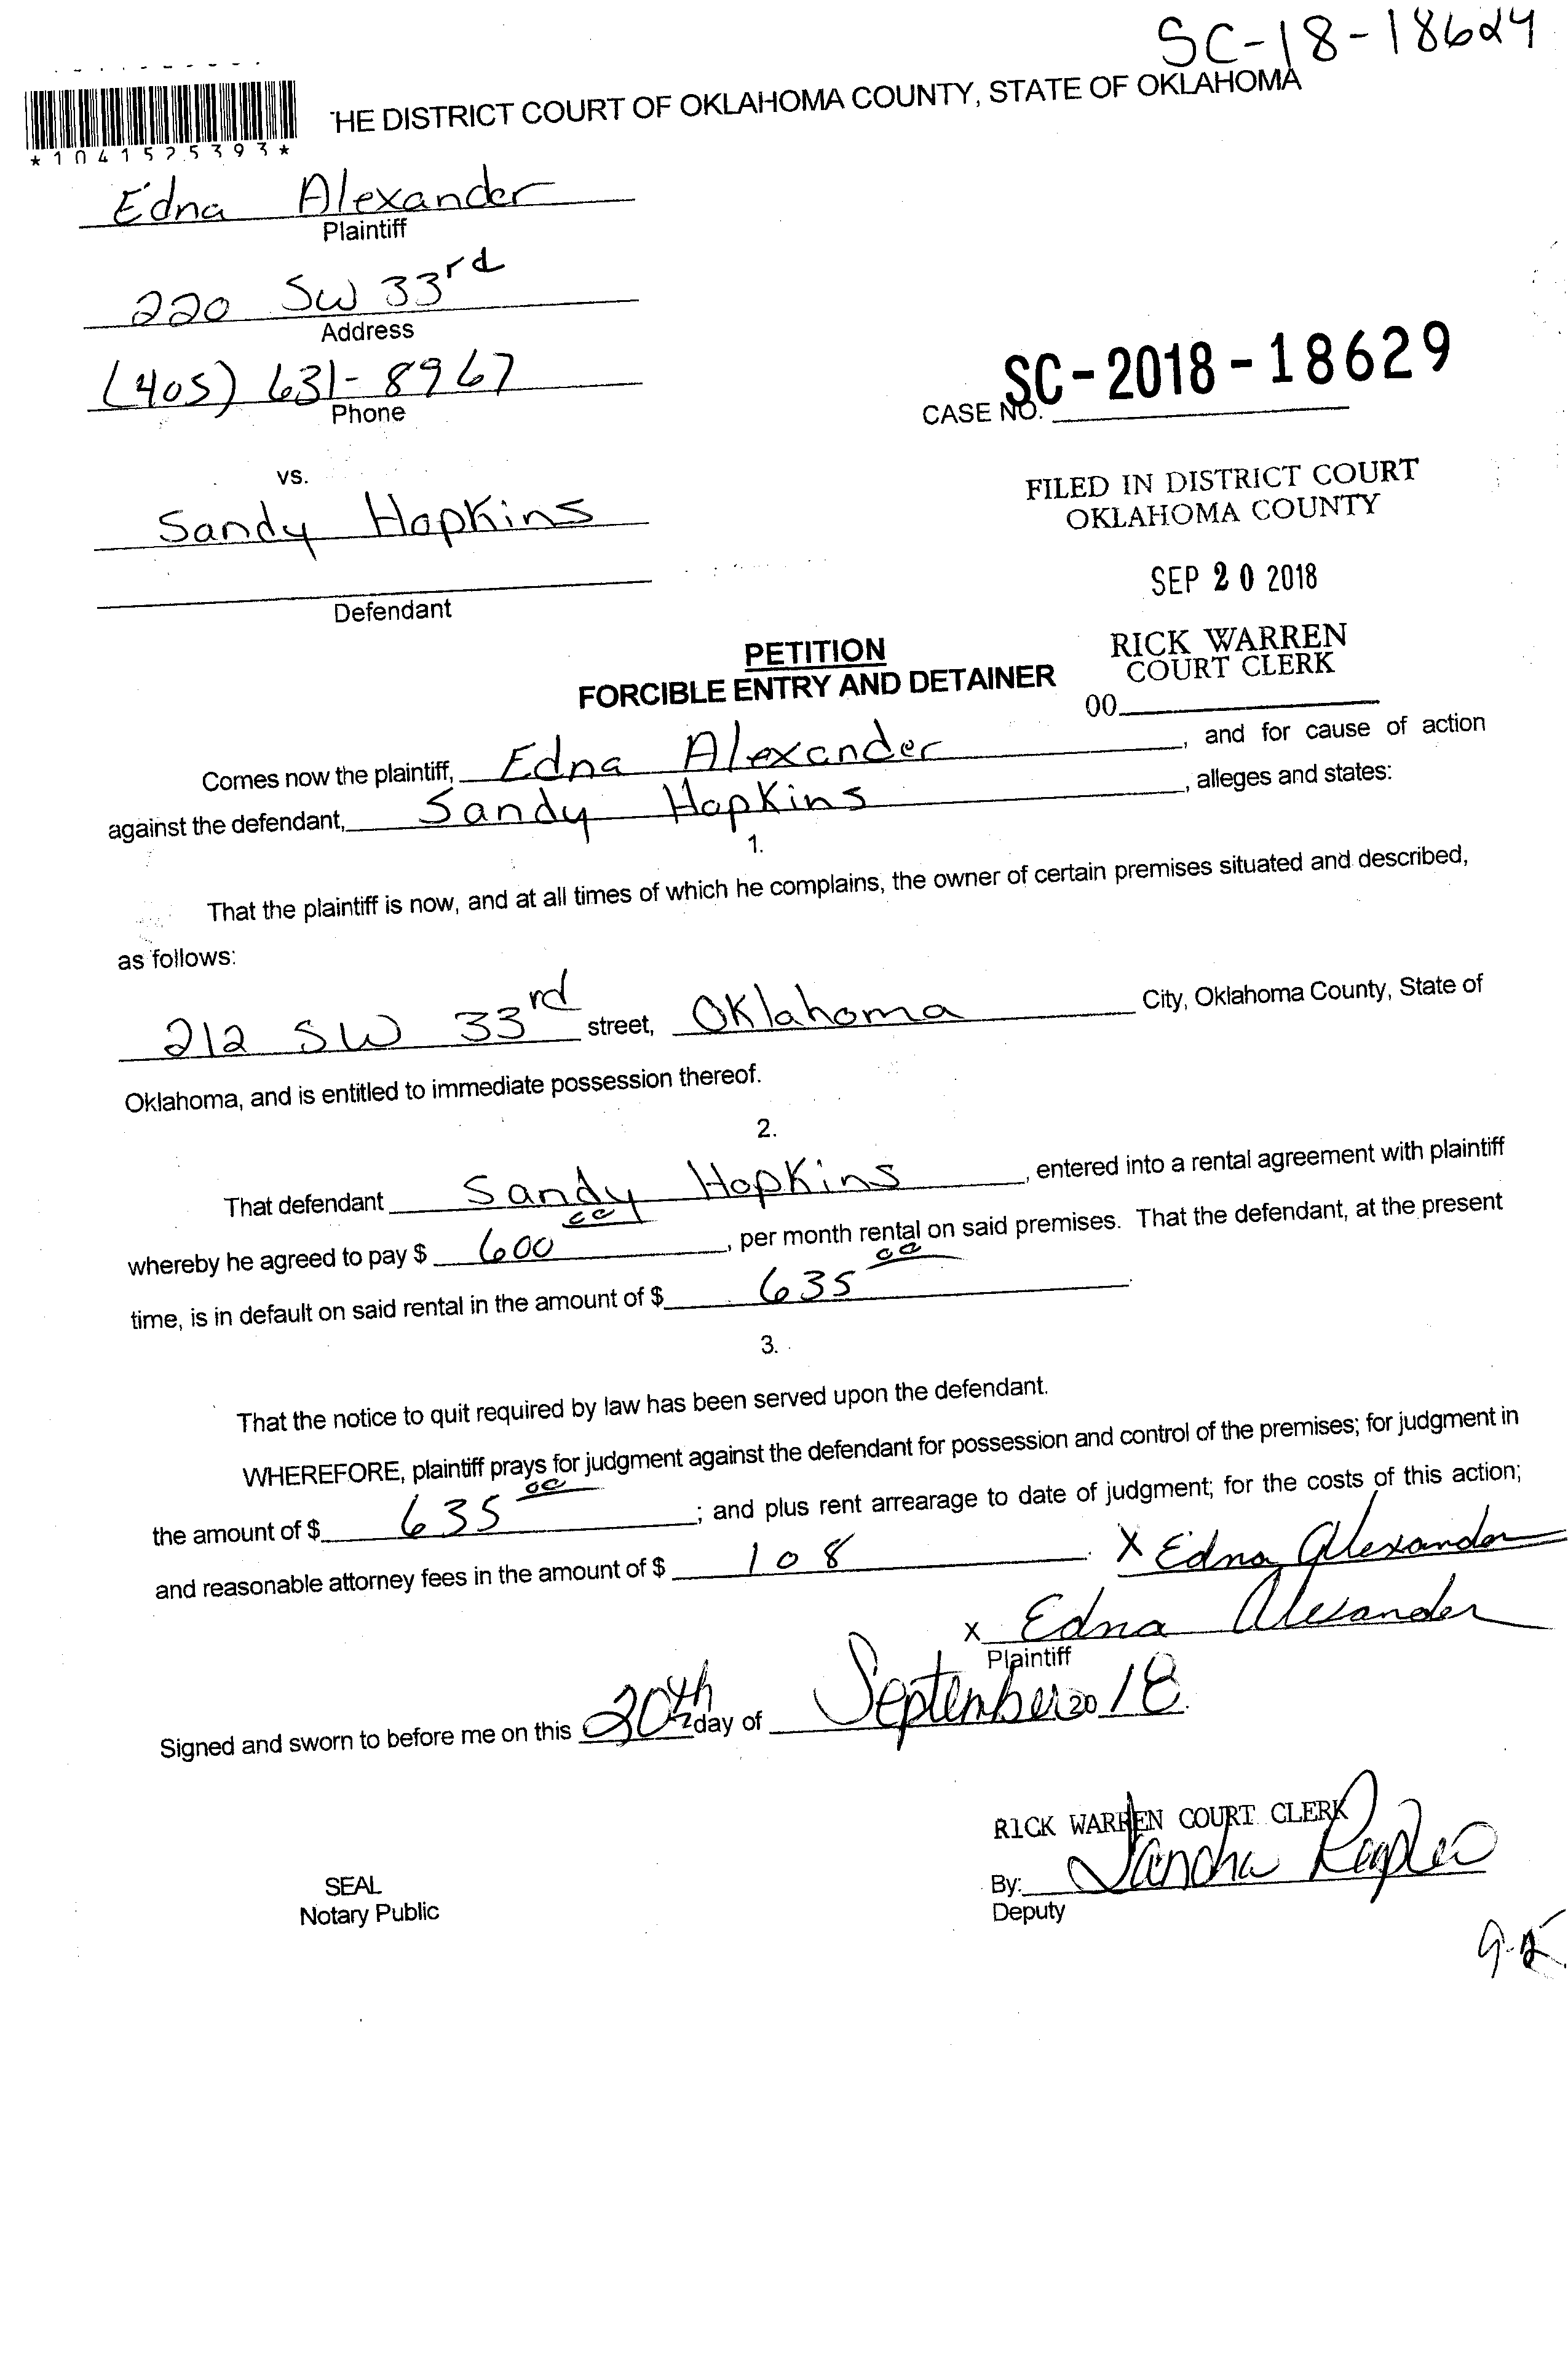 SC-18-18624
HE DISTRICT COURT OF OKLAHOMA COUNTY, STATE OF OKLAHOMA
*1041525393*
Edna Alexander
Plaintiff
220 SW 33rd
Address
(405) 631-8967
Phone
SC-2018-18629
CASE NO.
vs.
FILED IN DISTRICT COURT
OKLAHOMA COUNTY
Sandy Hopkins
SEP 20 2018
Defendant
RICK WARREN
COURT CLERK
00
PETITION
FORCIBLE ENTRY AND DETAINER
Comes now the plaintiff, Edna Alexander, and for cause of action
against the defendant, Sandy Hopkins, alleges and states:
1.
That the plaintiff is now, and at all times of which he complains, the owner of certain premises situated and described,
as follows:
212 SW 33rd street, Oklahoma City, Oklahoma County, State of
Oklahoma, and is entitled to immediate possession thereof.
2.
That defendant Sandy Hopkins, entered into a rental agreement with plaintiff
whereby he agreed to pay $ 600 00, per month rental on said premises. That the defendant, at the present
time, is in default on said rental in the amount of $ 635 00.
3.
That the notice to quit required by law has been served upon the defendant.
WHEREFORE, plaintiff prays for judgment against the defendant for possession and control of the premises; for judgment in
the amount of $ 635 00; and plus rent arrearage to date of judgment; for the costs of this action;
and reasonable attorney fees in the amount of $ 108.
X Edna Alexander
X Edna Alexander
Plaintiff
Signed and sworn to before me on this 20th day of September 2018.
RICK WARREN COURT CLERK
By:
Deputy
SEAL
Notary Public